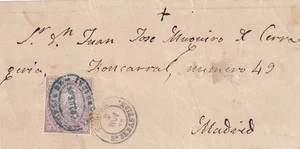 +
Sr. Dn. Juan Jose Muguiro de Cerra
geria, Foncarral, numero 49
Madrid